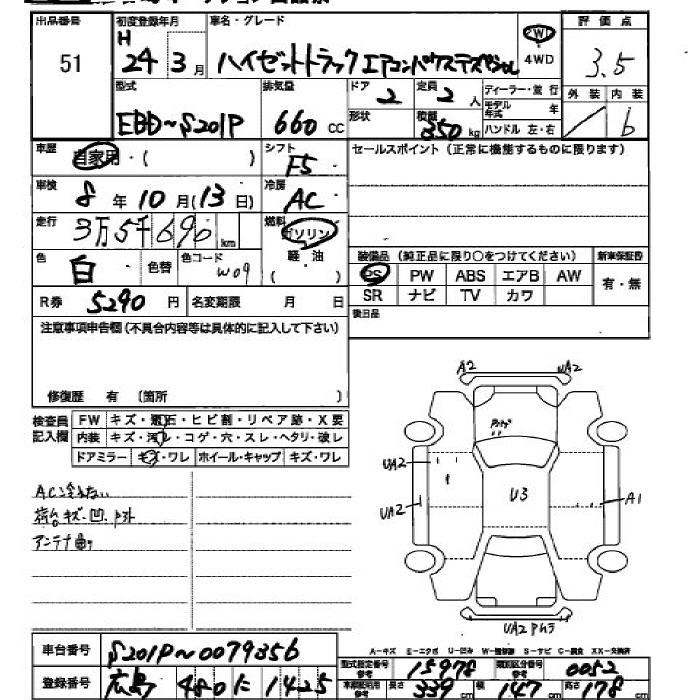 出品番号 初度登録年月 車名・グレード 評価点
51 H 24 3月 ハイゼットトラック エアコンパワステスペシャル 2W 4WD 3.5
型式 排気量 ドア 定員 ディーラー・並行 外装 内装
EBD~S201P 660 CC 2 2人 モデル年式 年 b
形状 積載 350 kg ハンドル 左・右
車歴 自家用・( ) シフト F5 セールスポイント(正常に機能するものに限ります)
車検 8年10月(13日) 冷房 AC
走行 3万5千696 km 燃料 ガソリン
色 白 色替 色コード W09 軽油 ( )
装備品(純正品に限り○をつけてください) 新車保証書
PS PW ABS エアB AW 有・無
SR ナビ TV カワ
R券 5290円 名変期限 月 日 後日品
注意事項申告欄(不具合内容等は具体的に記入して下さい)
修復歴 有 〔箇所 〕
検査員記入欄 FW キズ・飛石・ヒビ割・リペア跡・X要
内装 キズ・汚レ・コゲ・穴・スレ・ヘタリ・破レ
ドアミラー キズ・ワレ ホイール・キャップ キズ・ワレ
A2 UA2
UA2
U3
UA2 A1
AC冷えない
荷台キズ・凹、
アンテナ曲り
A-キズ E-エクボ U-凹み W-補修跡 S-サビ C-腐食 XX-交換済
車台番号 S201P~0079356 型式指定番号 参考 15978 類別区分番号 参考 0052
登録番号 広島 480 に 1425 車検証明用 参考 長さ 339 cm 幅 147 cm 高さ 178 cm